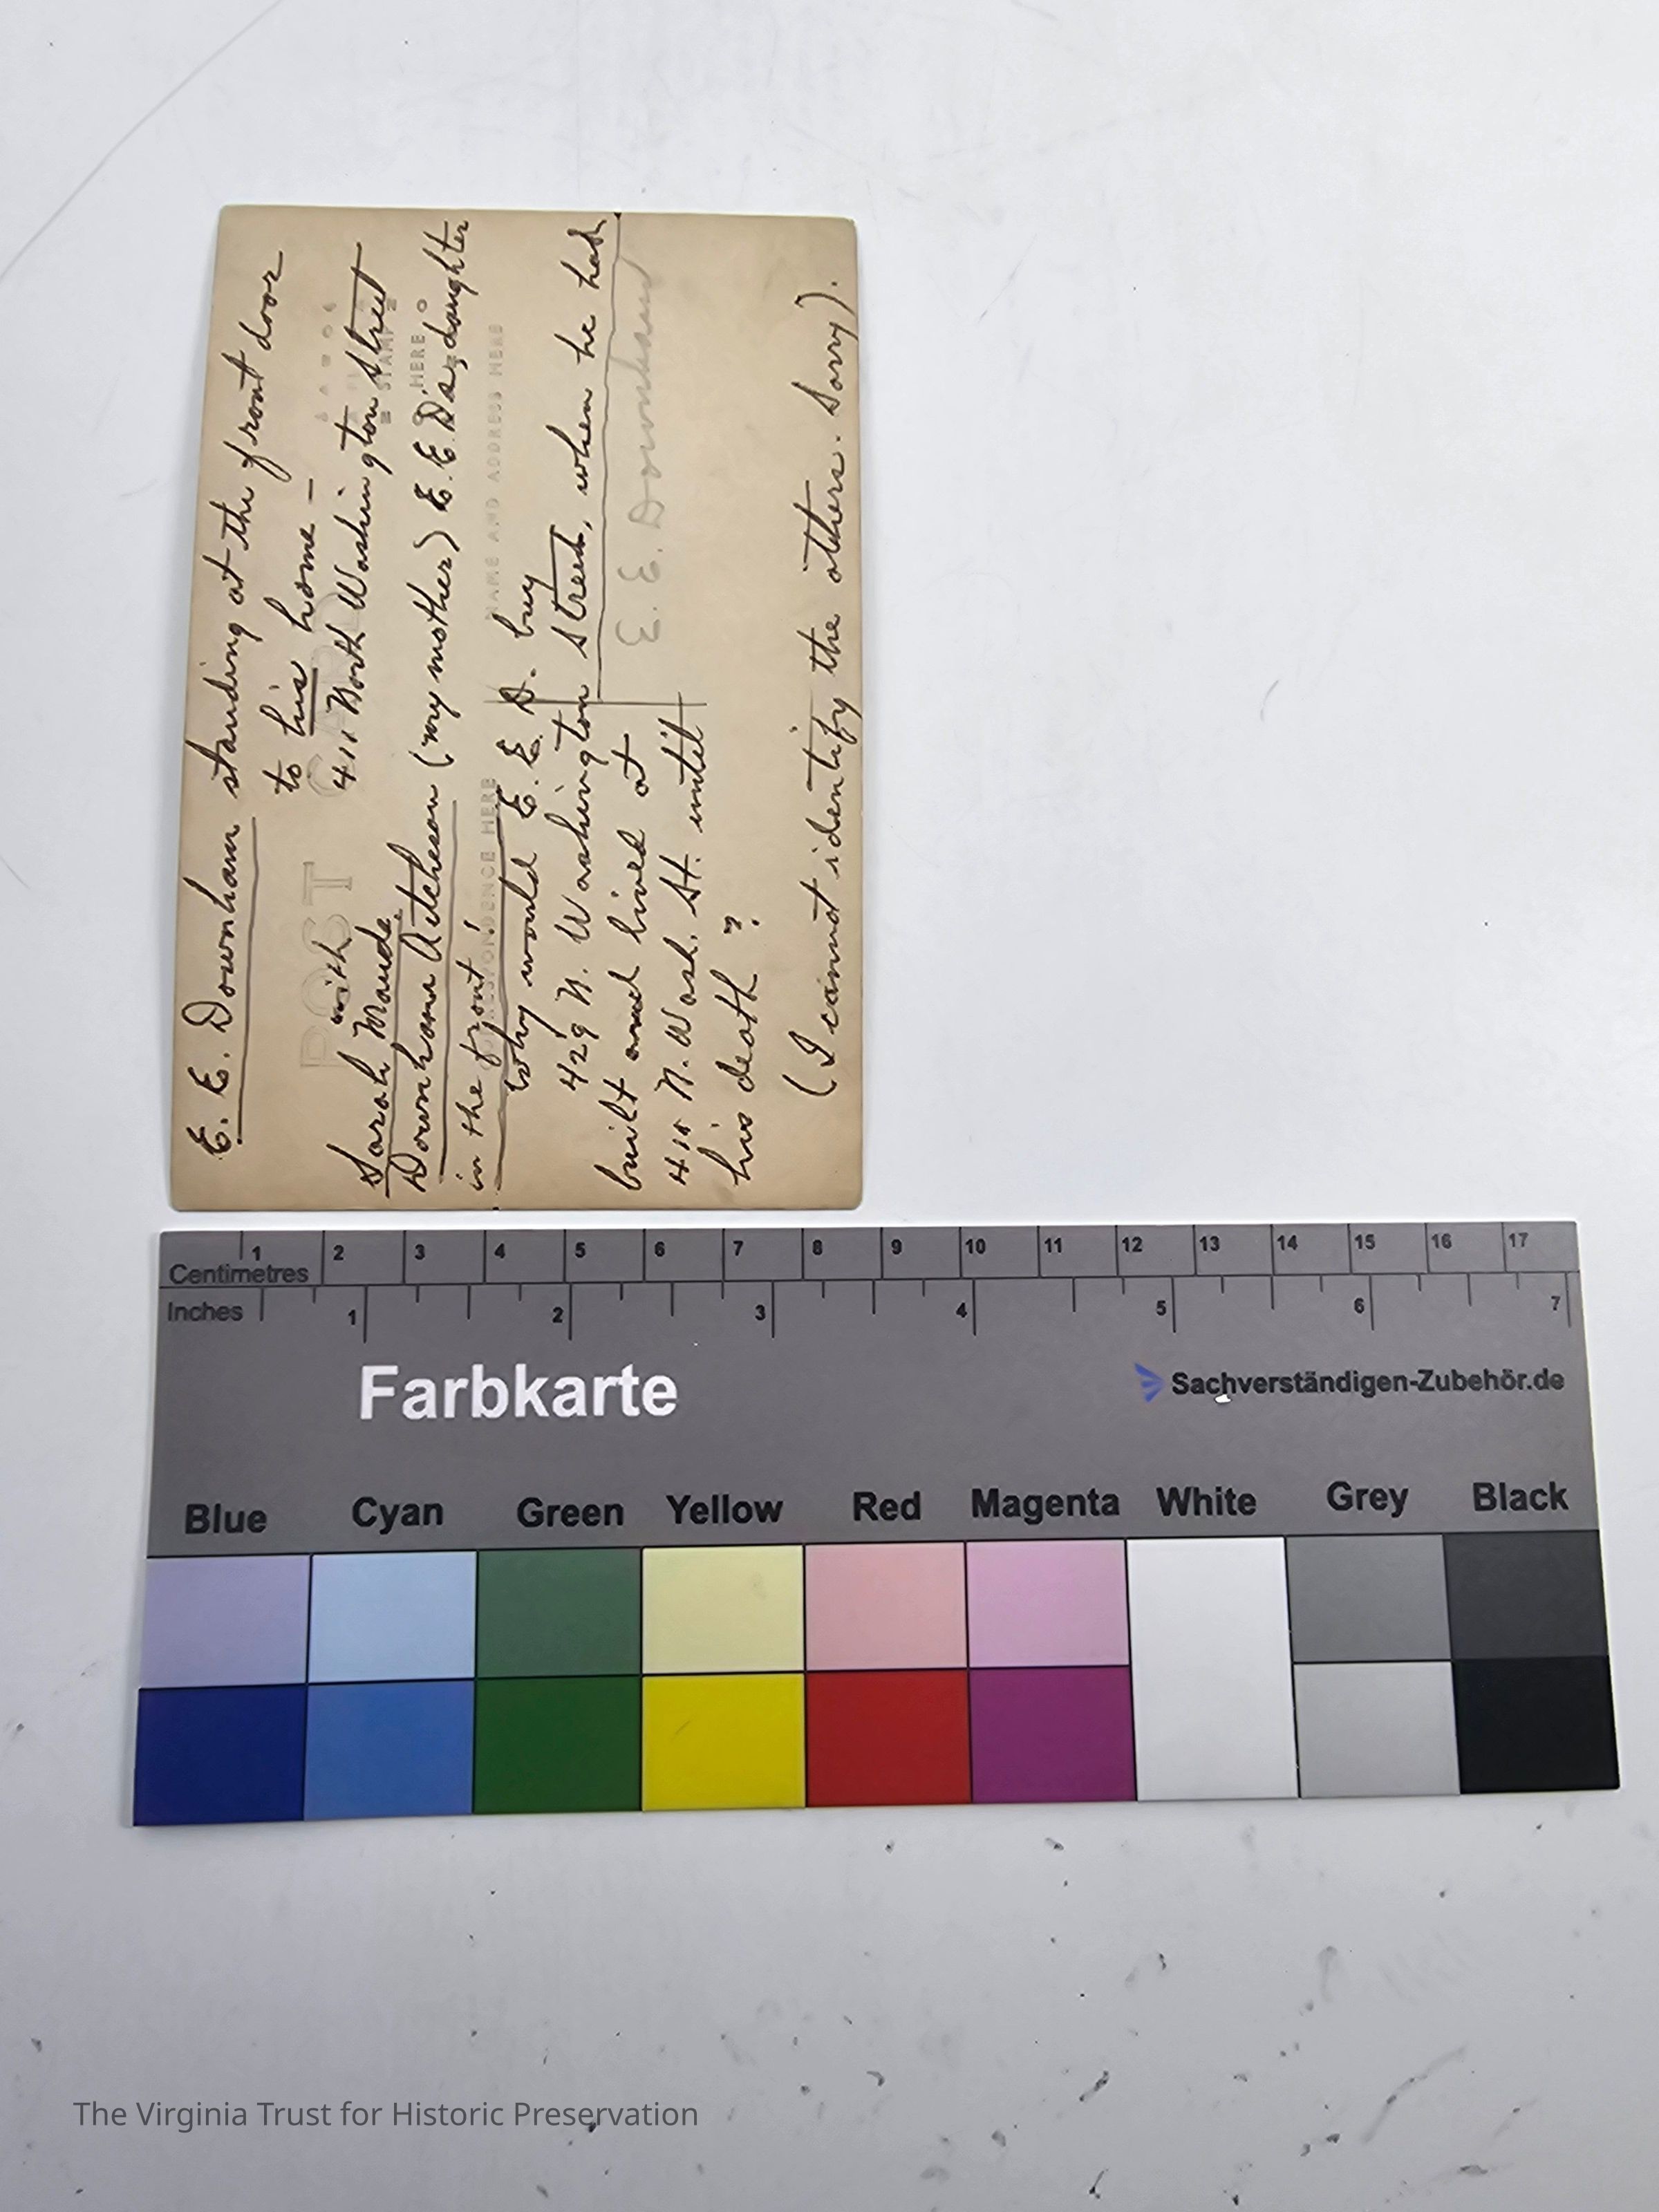 E. E. Downham standing at the front door
to his home —
411 North Washington Street
with
Sarah Maude
Downham Aitcheson (my mother) E. E. D's daughter
in the front!
Why would E. E. D. buy
429 N. Washington Street, when he had
built and lived at
411 N. Wash. St. until
his death?
(I cannot identify the others. Sorry).
E. E. Downham
POST CARD
STAMP
HERE
CORRESPONDENCE HERE
NAME AND ADDRESS HERE
Centimetres
1 2 3 4 5 6 7 8 9 10 11 12 13 14 15 16 17
Inches
1 2 3 4 5 6 7
Farbkarte
Sachverständigen-Zubehör.de
Blue Cyan Green Yellow Red Magenta White Grey Black
The Virginia Trust for Historic Preservation